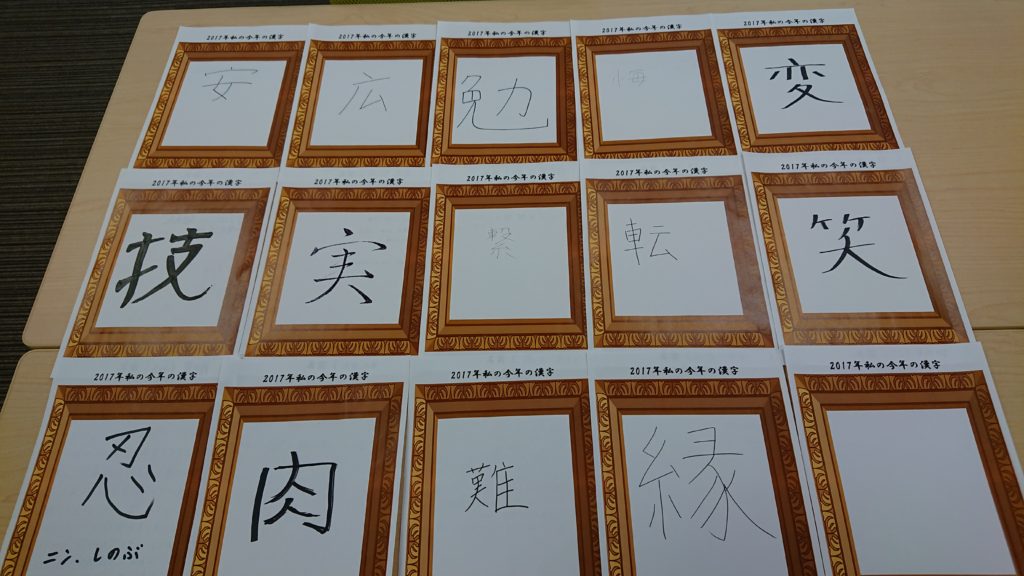 2017年私の今年の漢字
安
2017年私の今年の漢字
広
2017年私の今年の漢字
勉
2017年私の今年の漢字
悔
2017年私の今年の漢字
変
2017年私の今年の漢字
技
2017年私の今年の漢字
実
2017年私の今年の漢字
繋
2017年私の今年の漢字
転
2017年私の今年の漢字
笑
2017年私の今年の漢字
忍
ニン、しのぶ
2017年私の今年の漢字
肉
2017年私の今年の漢字
難
2017年私の今年の漢字
縁
2017年私の今年の漢字